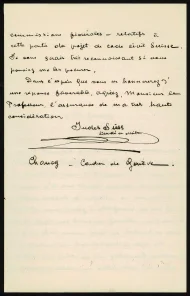 commissions fédérales - relatifs à
cette partie du projet de code civil Suisse.
Je vous serais bien reconnaissant si vous
pouviez me les procurer.
Dans l'espoir que vous m'honorerez d'
une réponse favorable, agréez, Monsieur le
Professeur, l'assurance de ma très haute
considération.
Chancy - Canton de Genève.